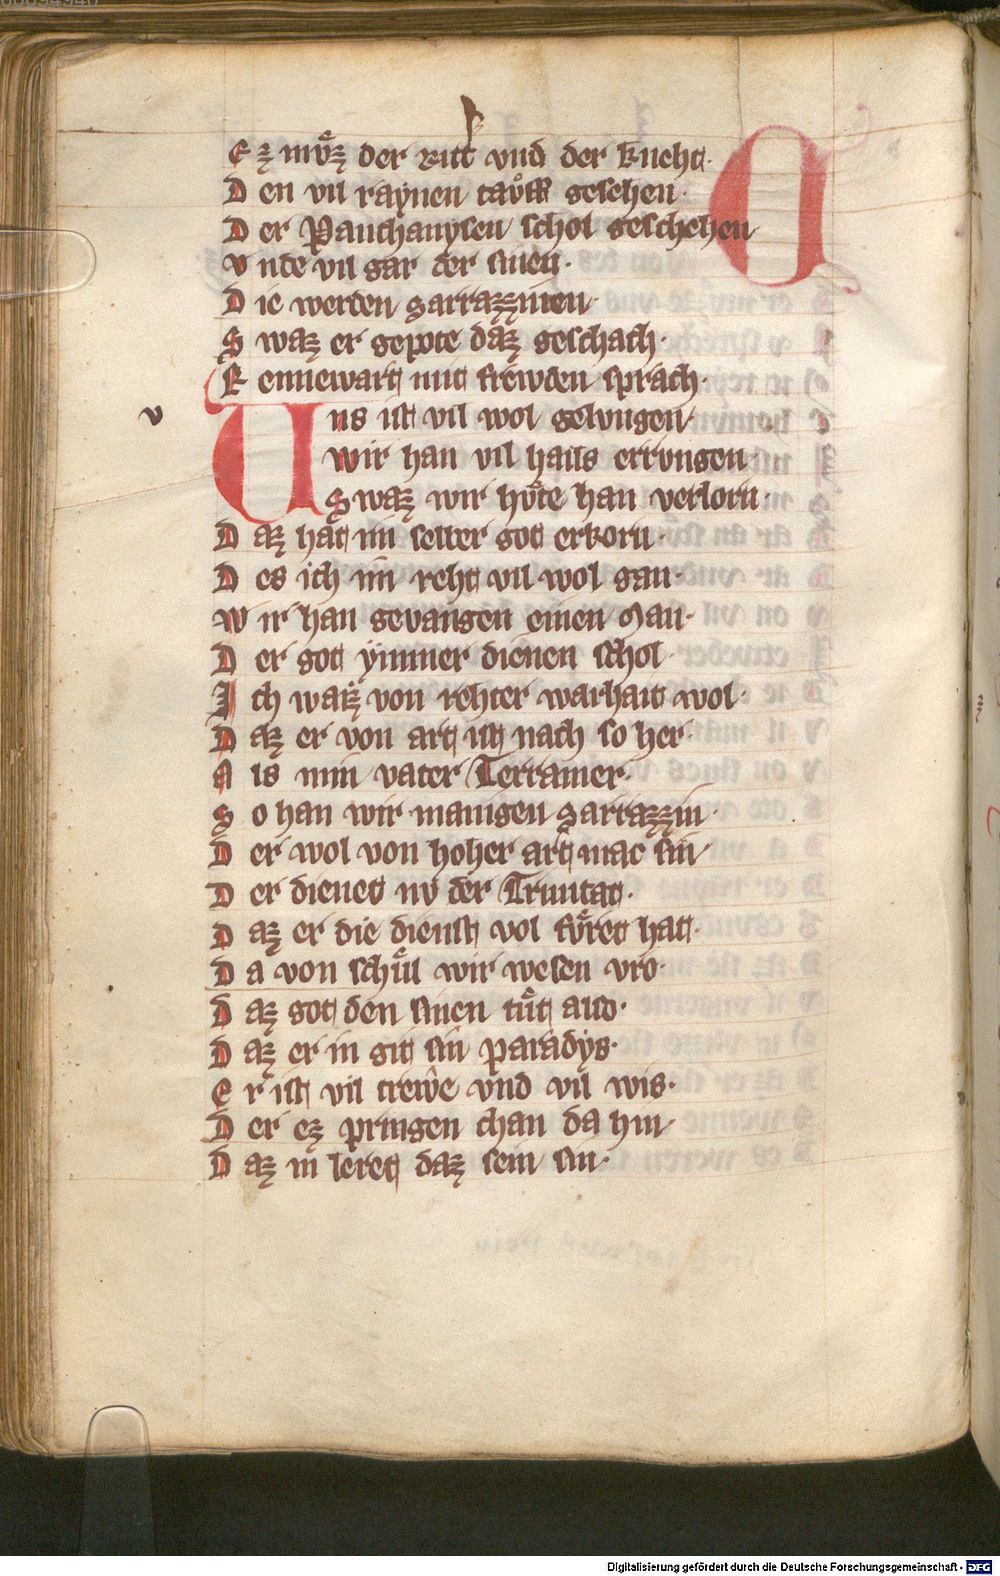 00094940
Ez mvͦz der Ritt͛ vnd der kneht·
Den vil raynen tavͦff gesehen·
Der Panchanysen schol geschehen
Vnde vil gar der sinen·
Die werden Sarrazzinen·
Swaz er gepote daz geschach·
Rennewart mit frewden sprach·
v
Uns ist vil wol gelvngen
wir han vil hails errvngen·
Swaz wir hvͤte han verlorn·
Daz hat im selber got erkorn·
Des ich im reht vil wol gan·
Wir han gevangen einen Man·
Der got ymmer dienen schol·
Ich waiz von rehter warhait wol·
Daz er von art ist nach so her·
Als min vater Terramer·
So han wir manigen Sarrazzin·
Der wol von hoher art mac sin
Der dienet nv der Trinitat·
Daz er die dienst vol fvͤret hat·
Da von schuͤl wir wesen vro·
Daz got den sinen tuͤt also·
Daz er in git sin paradys·
Er ist vil trewe vnd vil wis·
Der ez pringen chan da hin·
Daz in leret daz sein sin·
Digitalisierung gefördert durch die Deutsche Forschungsgemeinschaft - DFG